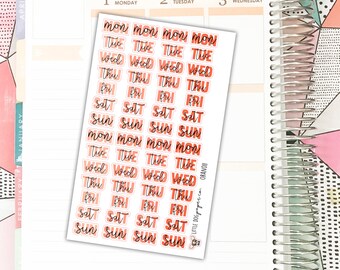 1 MONDAY 2 TUESDAY 3 WEDNESDAY
JANUARY
mon mon mon mon
TUE TUE TUE TUE
WED WED WED WED
THU THU THU THU
FRI FRI FRI FRI
SAT SAT SAT SAT
SUN SUN SUN SUN
mon mon mon mon
TUE TUE TUE TUE
WED WED WED WED
THU THU THU THU
FRI FRI FRI FRI
SAT SAT SAT SAT
SUN SUN SUN SUN